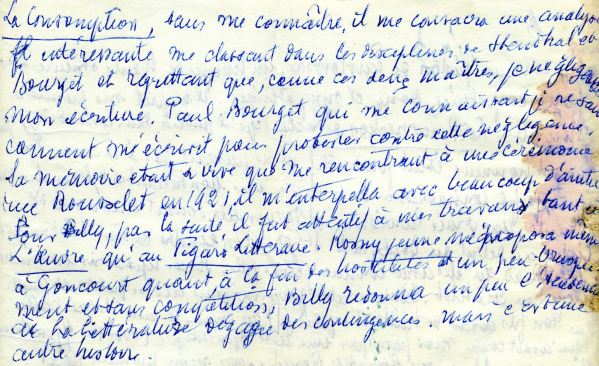 La Consomption, sans me connaître, il me consacra une analyse
intéressante me classant dans les disciplines de Stendhal et
Bourget et regrettant que, comme ces deux maîtres, je néglige
mon écriture. Paul Bourget qui me connaissait je ne sais
comment m'écrivit pour protester contre cette négligence.
Sa mémoire était si vive que me rencontrant à une cérémonie
rue Rousselet en 1921, il m'interpella avec beaucoup
Pour Billy, par la suite il fut attentif à mes travaux tant à
L'Œuvre qu'au Figaro Littéraire. Rosny jeune me proposa même
à Goncourt quant, à la fin des hostilités et un peu
ment et sans compétition, Billy redonna un peu
et la littérature dégagée des contingences. Mais c'est une
autre histoire.